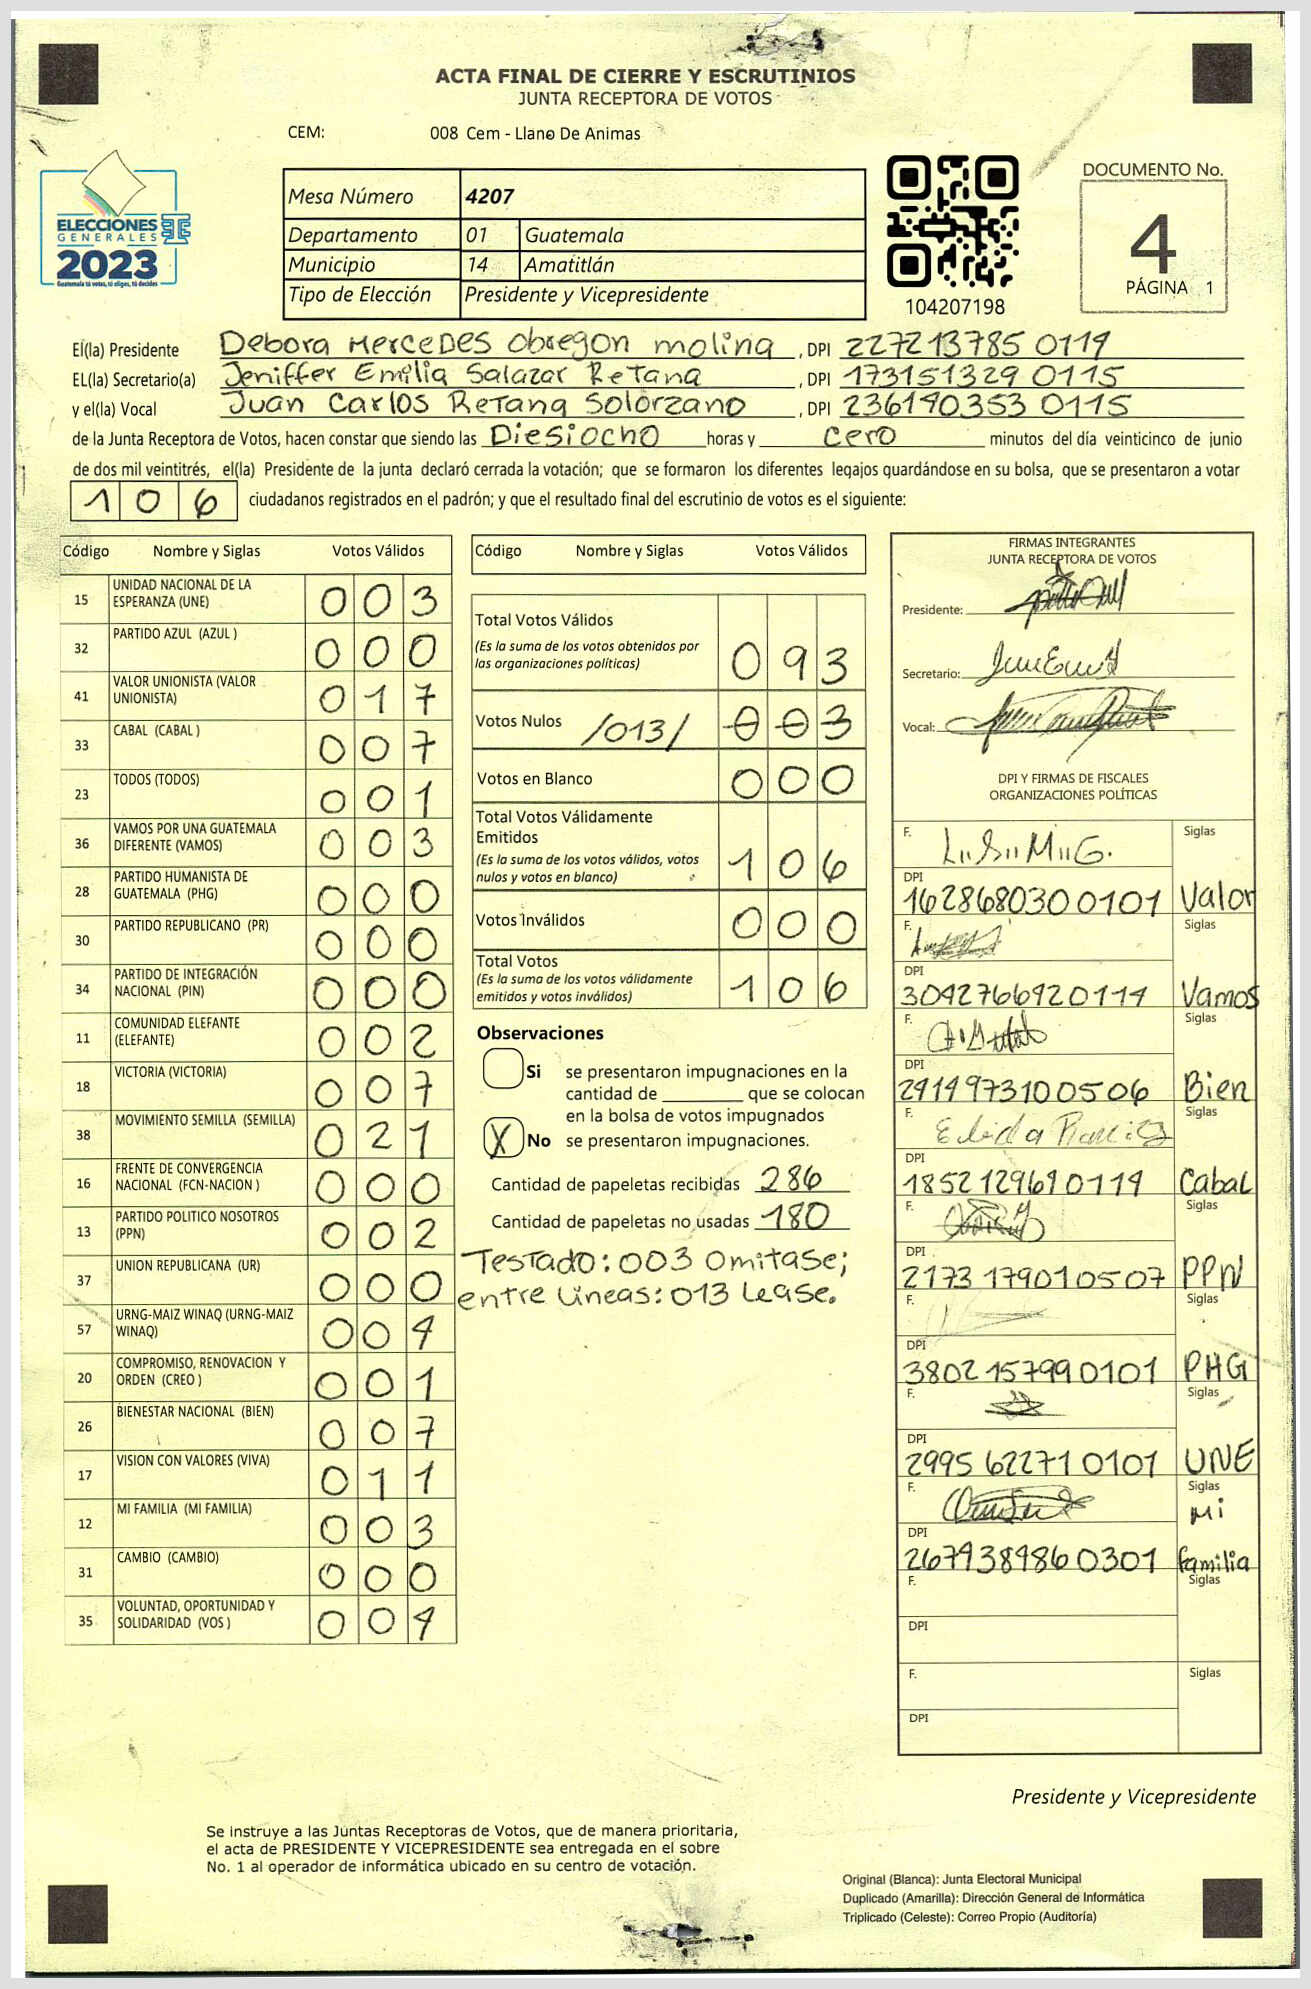 ACTA FINAL DE CIERRE Y ESCRUTINIOS
JUNTA RECEPTORA DE VOTOS
CEM: 008 Cem - Llano De Animas
ELECCIONES
GENERALES
2023
Guatemala tú votas, tú eliges, tú decides
Mesa Número 4207
Departamento 01 Guatemala
Municipio 14 Amatitlán
Tipo de Elección Presidente y Vicepresidente
104207198
DOCUMENTO No.
4
PÁGINA 1
El(la) Presidente Debora Mercedes Obregon molina , DPI 227213785 0114
EL(la) Secretario(a) Jeniffer Emilia Salazar Retana , DPI 173151329 0115
y el(la) Vocal Juan Carlos Retana Solorzano , DPI 236140353 0115
de la Junta Receptora de Votos, hacen constar que siendo las Diesiocho horas y cero minutos del día veinticinco de junio
de dos mil veintitrés, el(la) Presidente de la junta declaró cerrada la votación; que se formaron los diferentes legajos quardándose en su bolsa, que se presentaron a votar
106 ciudadanos registrados en el padrón; y que el resultado final del escrutinio de votos es el siguiente:
Código Nombre y Siglas Votos Válidos
15 UNIDAD NACIONAL DE LA ESPERANZA (UNE) 003
32 PARTIDO AZUL (AZUL ) 000
41 VALOR UNIONISTA (VALOR UNIONISTA) 017
33 CABAL (CABAL ) 007
23 TODOS (TODOS) 001
36 VAMOS POR UNA GUATEMALA DIFERENTE (VAMOS) 003
28 PARTIDO HUMANISTA DE GUATEMALA (PHG) 000
30 PARTIDO REPUBLICANO (PR) 000
34 PARTIDO DE INTEGRACIÓN NACIONAL (PIN) 000
11 COMUNIDAD ELEFANTE (ELEFANTE) 002
18 VICTORIA (VICTORIA) 007
38 MOVIMIENTO SEMILLA (SEMILLA) 021
16 FRENTE DE CONVERGENCIA NACIONAL (FCN-NACION ) 000
13 PARTIDO POLITICO NOSOTROS (PPN) 002
37 UNION REPUBLICANA (UR) 000
57 URNG-MAIZ WINAQ (URNG-MAIZ WINAQ) 004
20 COMPROMISO, RENOVACION Y ORDEN (CREO ) 001
26 BIENESTAR NACIONAL (BIEN) 007
17 VISION CON VALORES (VIVA) 011
12 MI FAMILIA (MI FAMILIA) 003
31 CAMBIO (CAMBIO) 000
35 VOLUNTAD, OPORTUNIDAD Y SOLIDARIDAD (VOS ) 004
Código Nombre y Siglas Votos Válidos
Total Votos Válidos
(Es la suma de los votos obtenidos por
las organizaciones políticas) 093
Votos Nulos /013/ 003
Votos en Blanco 000
Total Votos Válidamente
Emitidos
(Es la suma de los votos válidos, votos
nulos y votos en blanco) 106
Votos Inválidos 000
Total Votos
(Es la suma de los votos válidamente
emitidos y votos inválidos) 106
Observaciones
Si se presentaron impugnaciones en la
cantidad de ________ que se colocan
en la bolsa de votos impugnados
X No se presentaron impugnaciones.
Cantidad de papeletas recibidas 286
Cantidad de papeletas no usadas 180
Testado: 003 Omitase;
entre lineas: 013 Lease.
FIRMAS INTEGRANTES
JUNTA RECEPTORA DE VOTOS
Presidente:
Secretario:
Vocal:
DPI Y FIRMAS DE FISCALES
ORGANIZACIONES POLÍTICAS
F. Siglas
DPI
162868030 0101 Valor
F. Siglas
DPI
3042766420114 Vamos
F. Siglas
DPI
2414973100506 Bien
F. Siglas
DPI
1852129640114 Cabal
F. Siglas
DPI
2173179010507 PPN
F. Siglas
DPI
3802157990101 PHG
F. Siglas
DPI
2995622710101 UNE
F. Siglas
DPI
2674384860301 Mi familia
F. Siglas
DPI
F. Siglas
DPI
Presidente y Vicepresidente
Se instruye a las Juntas Receptoras de Votos, que de manera prioritaria,
el acta de PRESIDENTE Y VICEPRESIDENTE sea entregada en el sobre
No. 1 al operador de informática ubicado en su centro de votación.
Original (Blanca): Junta Electoral Municipal
Duplicado (Amarilla): Dirección General de Informática
Triplicado (Celeste): Correo Propio (Auditoría)